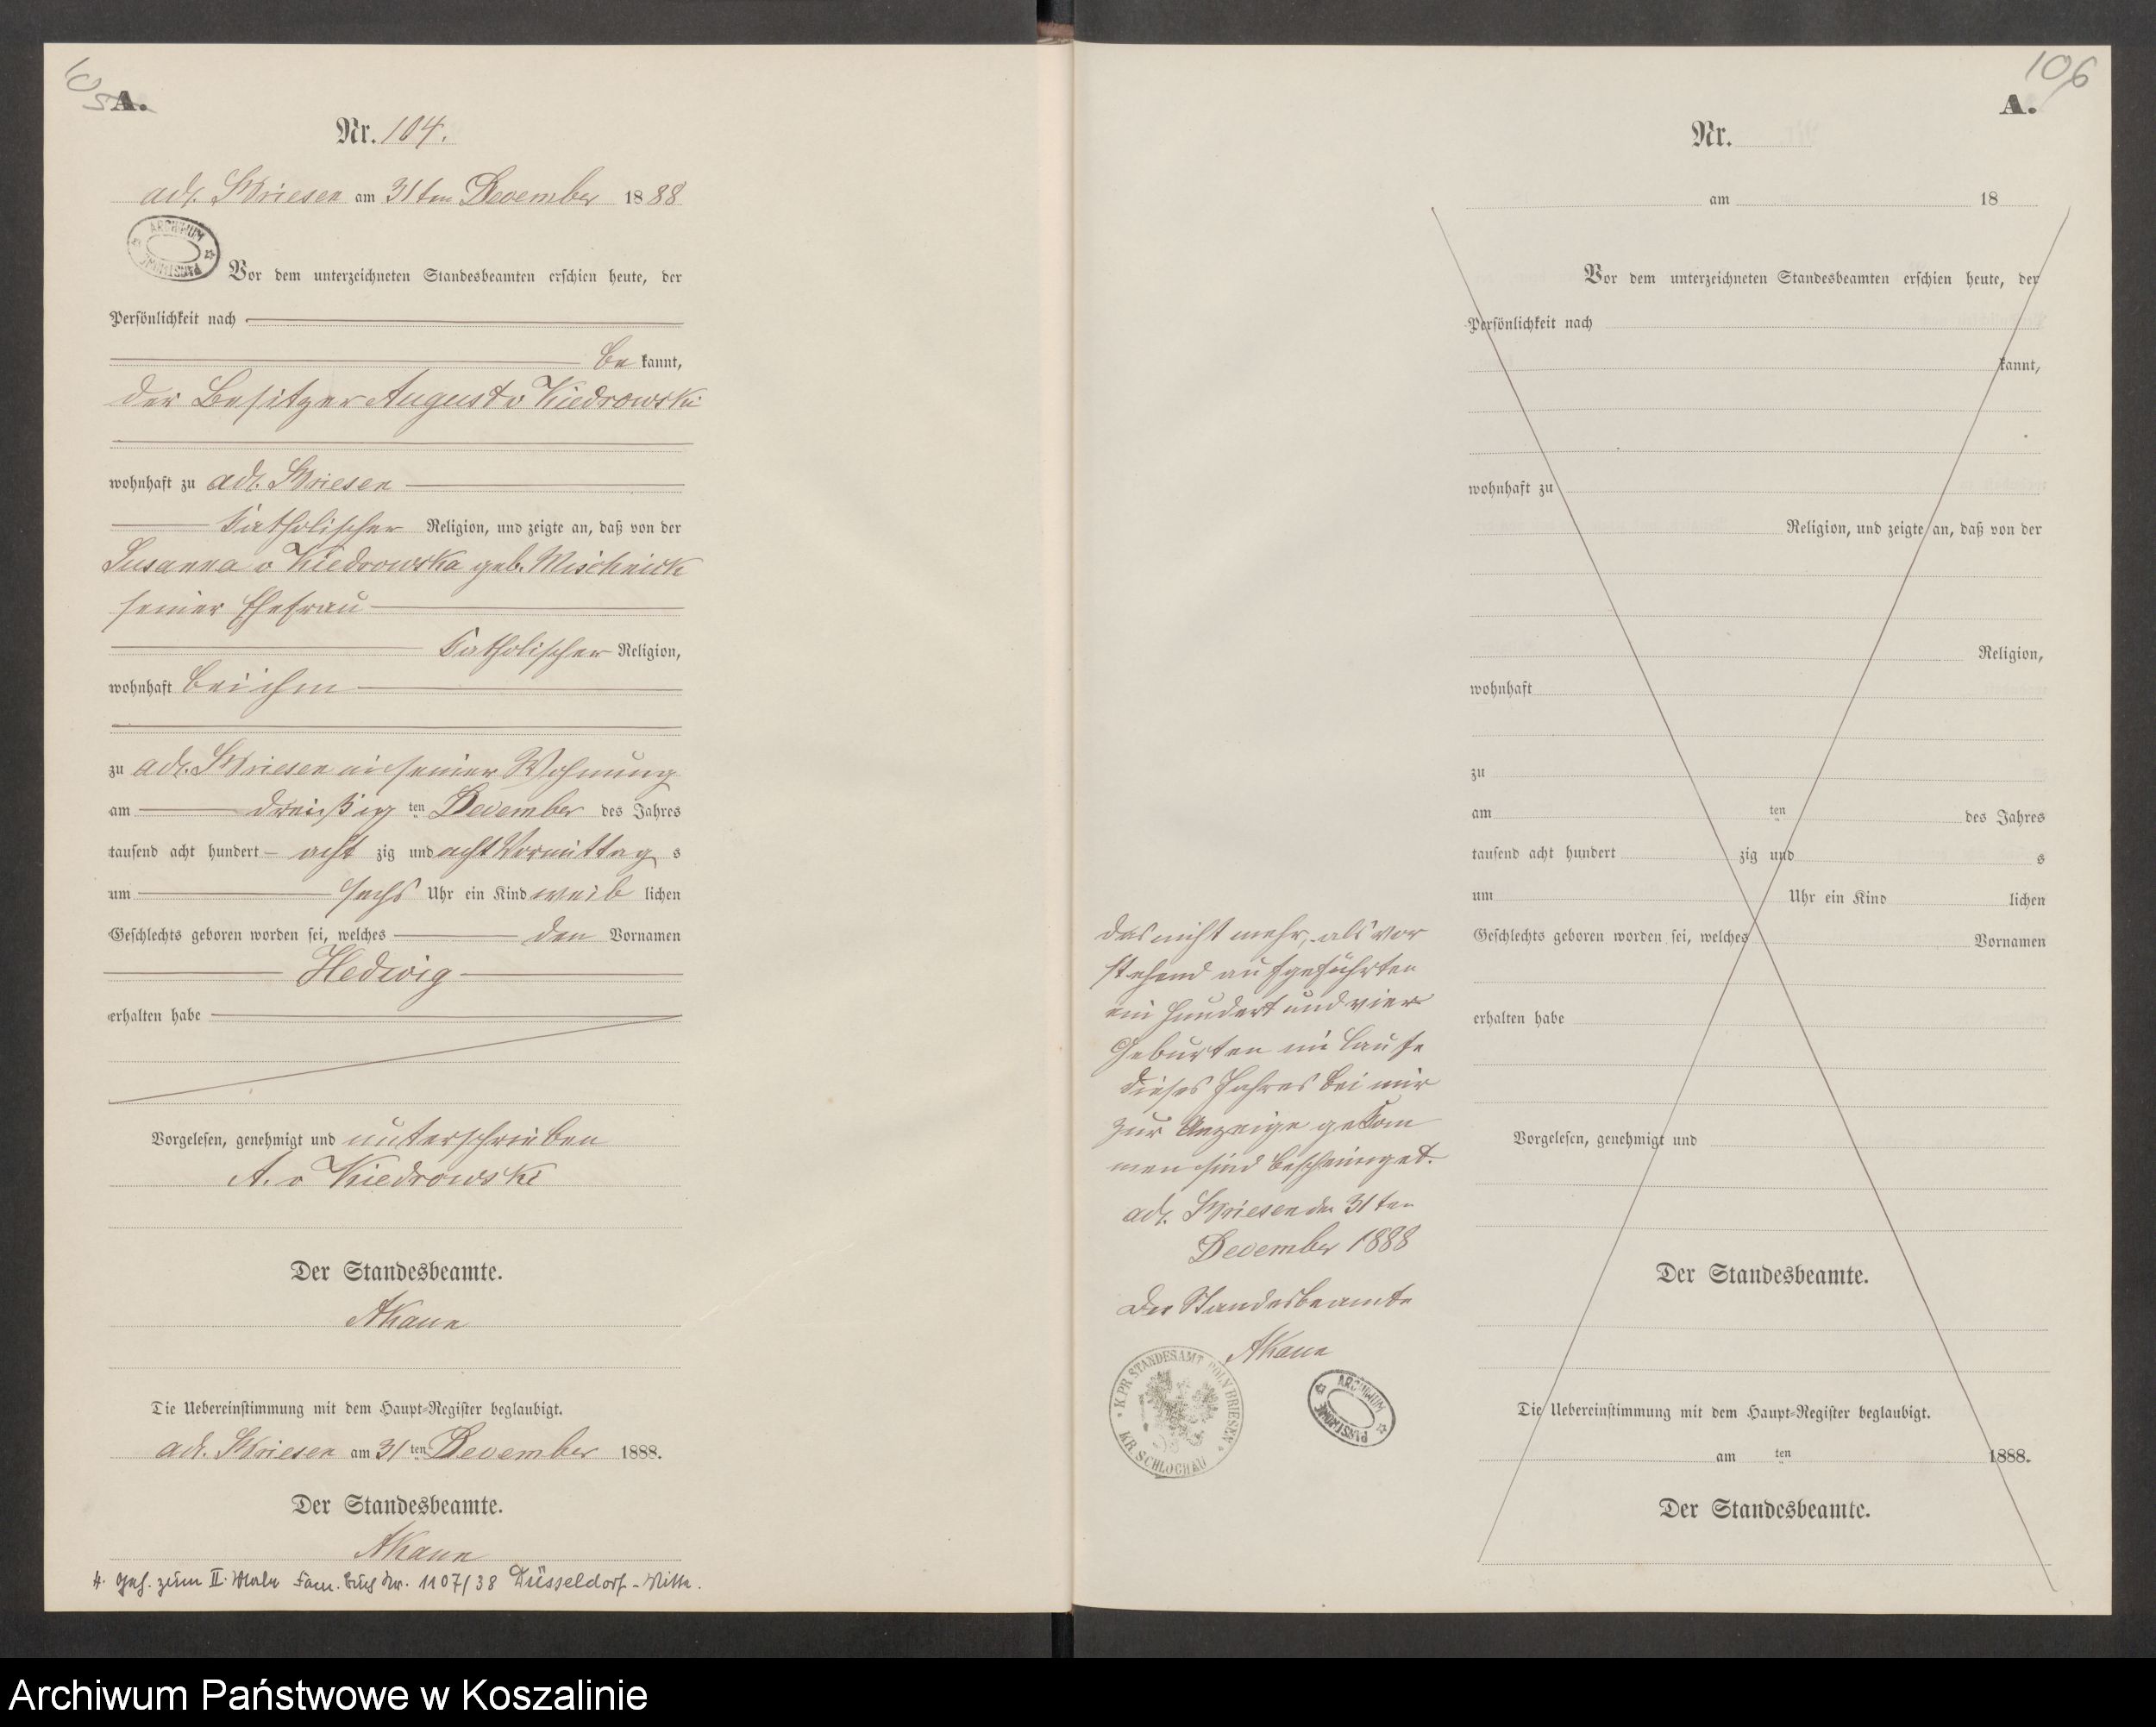 105
A.
Nr. 104.
adl. Briesen am 31ten December 1888
ARCHIWUM PAŃSTWOWE
Vor dem unterzeichneten Standesbeamten erschien heute, der
Persönlichkeit nach
be kannt,
der Besitzer August v Kiedrowski
wohnhaft zu adl. Briesen
katholischer Religion, und zeigte an, daß von der
Susanna v Kiedrowska geb. Mischnick
seiner Ehefrau
katholischer Religion,
wohnhaft bei ihm
zu adl. Briesen in seiner Wohnung
am dreißig ten December des Jahres
tausend acht hundert acht zig und acht Vormittag s
um sechs Uhr ein Kind weib lichen
Geschlechts geboren worden sei, welches den Vornamen
Hedwig
erhalten habe
Vorgelesen, genehmigt und unterschrieben
A. v Kiedrowski
Der Standesbeamte.
Die Uebereinstimmung mit dem Haupt-Register beglaubigt.
adl. Briesen am 31 ten December 1888.
Der Standesbeamte.
geh. zum II. Male Fam. Buch Nr. 1107/38 Düsseldorf-Mitte.
das nicht mehr, als vor
stehend aufgeführten
ein hundert und vier
Geburten im Laufe
dieses Jahres bei mir
zur Anzeige gekom
men sind bescheinigt.
adl. Briesen den 31ten
December 1888
Der Standesbeamte
K. PR. STANDESAMT POLN BRIESEN
KR. SCHLOCHAU
ARCHIWUM PAŃSTWOWE
106
A.
Nr.
am 18
Vor dem unterzeichneten Standesbeamten erschien heute, der
Persönlichkeit nach
kannt,
wohnhaft zu
Religion, und zeigte an, daß von der
Religion,
wohnhaft
zu
am ten des Jahres
tausend acht hundert zig und s
um Uhr ein Kind lichen
Geschlechts geboren worden sei, welches Vornamen
erhalten habe
Vorgelesen, genehmigt und
Der Standesbeamte.
Die Uebereinstimmung mit dem Haupt-Register beglaubigt.
am ten 1888.
Der Standesbeamte.
Archiwum Państwowe w Koszalinie